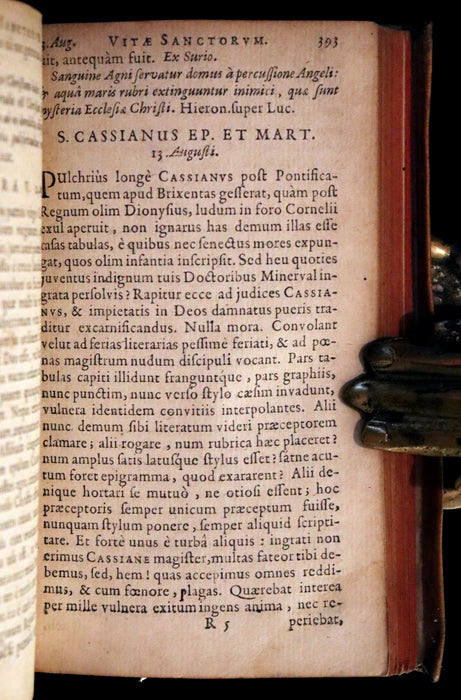 3. Aug. VITÆ SANCTORVM. 393
uit, antequàm fuit. Ex Surio.
Sanguine Agni servatur domus à percussione Angeli:
& aquâ maris rubri extinguuntur inimici, quæ sunt
mysteria Ecclesiæ Christi. Hieron. super Luc.
S. CASSIANUS EP. ET MART.
13 Augusti.
PUlchriùs longè CASSIANVS post Pontifica-
tum, quem apud Brixentas gesserat, quàm post
Regnum olim Dionysius, ludum in foro Cornelii
exul aperuit, non ignarus has demum illas esse
rasas tabulas, è quibus nec senectus mores expun-
gat, quos olim infantia inscripsit. Sed heu quoties
juventus indignum tuis Doctoribus Minerval in-
grata persolvis? Rapitur ecce ad judices CASSIA-
NVS, & impietatis in Deos damnatus pueris tra-
ditur excarnificandus. Nulla mora. Convolant
velut ad ferias literarias pessimè feriati, & ad pœ-
nas magistrum nudum discipuli vocant. Pars ta-
bulas capiti illidunt franguntque, pars graphiis,
nunc punctim, nunc verso stylo cæsim invadunt,
vulnera identidem convitiis interpolantes. Alii
nunc demum sibi literatum videri præceptorem
clamare; alii rogare, num rubrica hæc placeret?
num amplus satis latusque stylus esset? satne acu-
tum foret epigramma, quod exararent? Alii de-
nique hortari se mutuò, ne otiosi essent; hoc
præceptoris semper unicum præceptum fuisse,
nunquam stylum ponere, semper aliquid scripti-
tare. Et fortè unus è turbâ aliquis: ingrati non
erimus CASSIANE magister, multas fateor tibi de-
bemus, sed, hem! quas accepimus omnes reddi-
mus, & cum fœnore, plagas. Quærebat interea
per mille vulnera exitum ingens anima, nec re-
R 5 periebat,